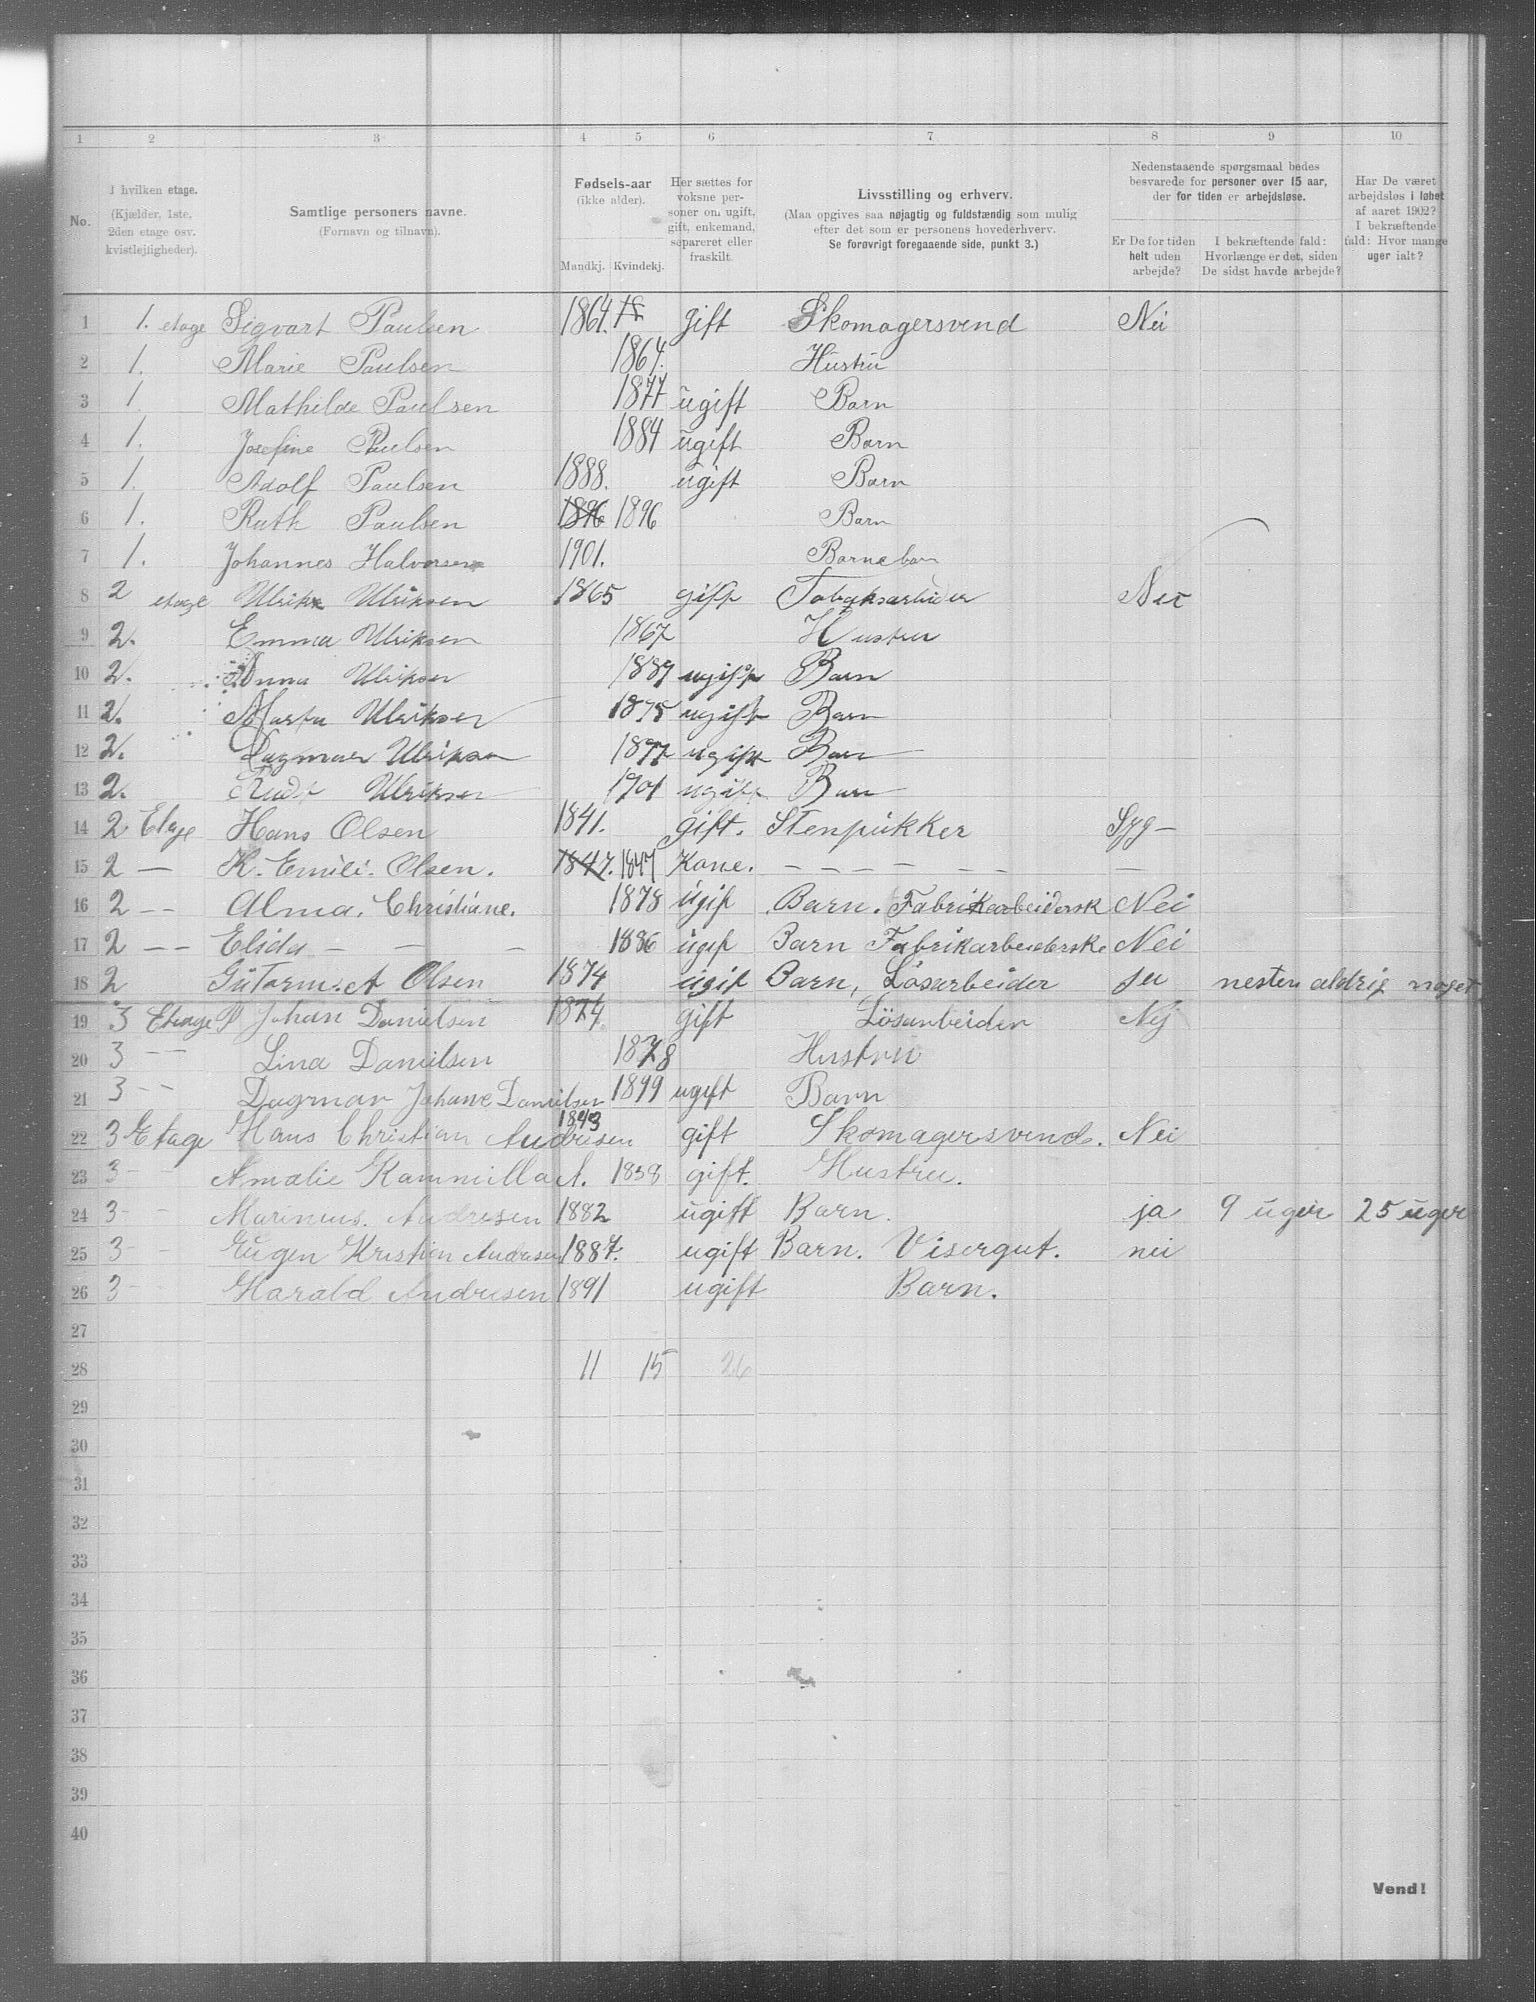 1 2 3 4 5 6 7 8 9 10
No.
I hvilken etage.
(Kjælder, 1ste, 2den etage osv. kvistlejligheder).
Samtlige personers navne.
(Fornavn og tilnavn).
Fødsels-aar
(ikke alder).
Mandkj. Kvindekj.
Her sættes for voksne personer om ugift, gift, enkemand, separeret eller fraskilt.
Livsstilling og erhverv.
(Maa opgives saa nøjagtig og fuldstændig som mulig efter det som er personens hovederhverv.
Se forøvrigt foregaaende side, punkt 3.)
Nedenstaaende spørgsmaal bedes besvarede for personer over 15 aar, der for tiden er arbejdsløse.
Er De for tiden helt uden arbejde?
I bekræftende fald: Hvorlænge er det, siden De sidst havde arbejde?
Har De været arbejdsløs i løbet af aaret 1902?
I bekræftende fald: Hvor mange uger ialt?
1 1. etage Sigvart Paulsen 1864. 18 gift Skomagersvend Nei
2 1. Marie Paulsen 1864. Hustru
3 1 Mathilde Paulsen 1877 ugift Barn
4 1. Josefine Paulsen 1884 ugift Barn
5 1. Adolf Paulsen 1888. ugift Barn
6 1. Ruth Paulsen 1896 1896 Barn
7 1. Johannes Halvorsen 1901. Barnebarn
8 2 etage Ulrik Ulriksen 1865 gift Tobaksarbeider Nei
9 2. Emma Ulriksen 1867 Hustru
10 2. Anna Ulriksen 1889 ugift Barn
11 2. Marta Ulriksen 1895 ugift Barn
12 2. Dagmar Ulriksen 1897 ugift Barn
13 2. Ulriksen 1901 ugift Barn
14 2 Etage Hans Olsen 1841. gift. Stenpukker Syg -
15 2 — K. Emili. Olsen. 1847. 1847 Kone. — — — — — —
16 2 -- Alma. Christiane. 1878 ugif Barn. Fabrikarbeidersk Nei
17 2 -- Elida — — — 1886 ugif Barn Fabrikarbeiderske Nei
18 2 Gutorm. A Olsen 1874 ugif Barn, Lösarbeider ja nesten aldrig noget
19 3 Etage P Johan Danielsen 1874. gift Lösarbeider Nej
20 3 -- Lina Danielsen 1878 Hustru
21 3 -- Dagmar Johane Danielsen 1899 ugift Barn
22 3 Etage Hans Christian Andresen 1843 gift Skomagersvend. Nei
23 3 - Amalie Kammilla A. 1838 gift. Hustru.
24 3 - Marineus. Andresen 1882 ugift Barn. ja 9 uger 25 uger
25 3 - Eugen Kristian Andresen 1887. ugift Barn. Visergut. nei
26 3 - Harald Andresen 1891 ugift Barn.
27
28 11 15 26
29
30
31
32
33
34
35
36
37
38
39
40
Vend!